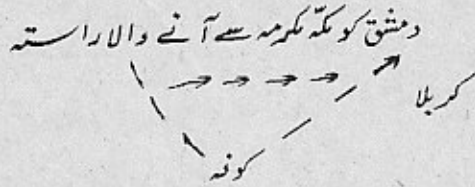 دمشق کو مکّہ مکرمہ سے آنے والا راستہ
کربلا
کوفہ